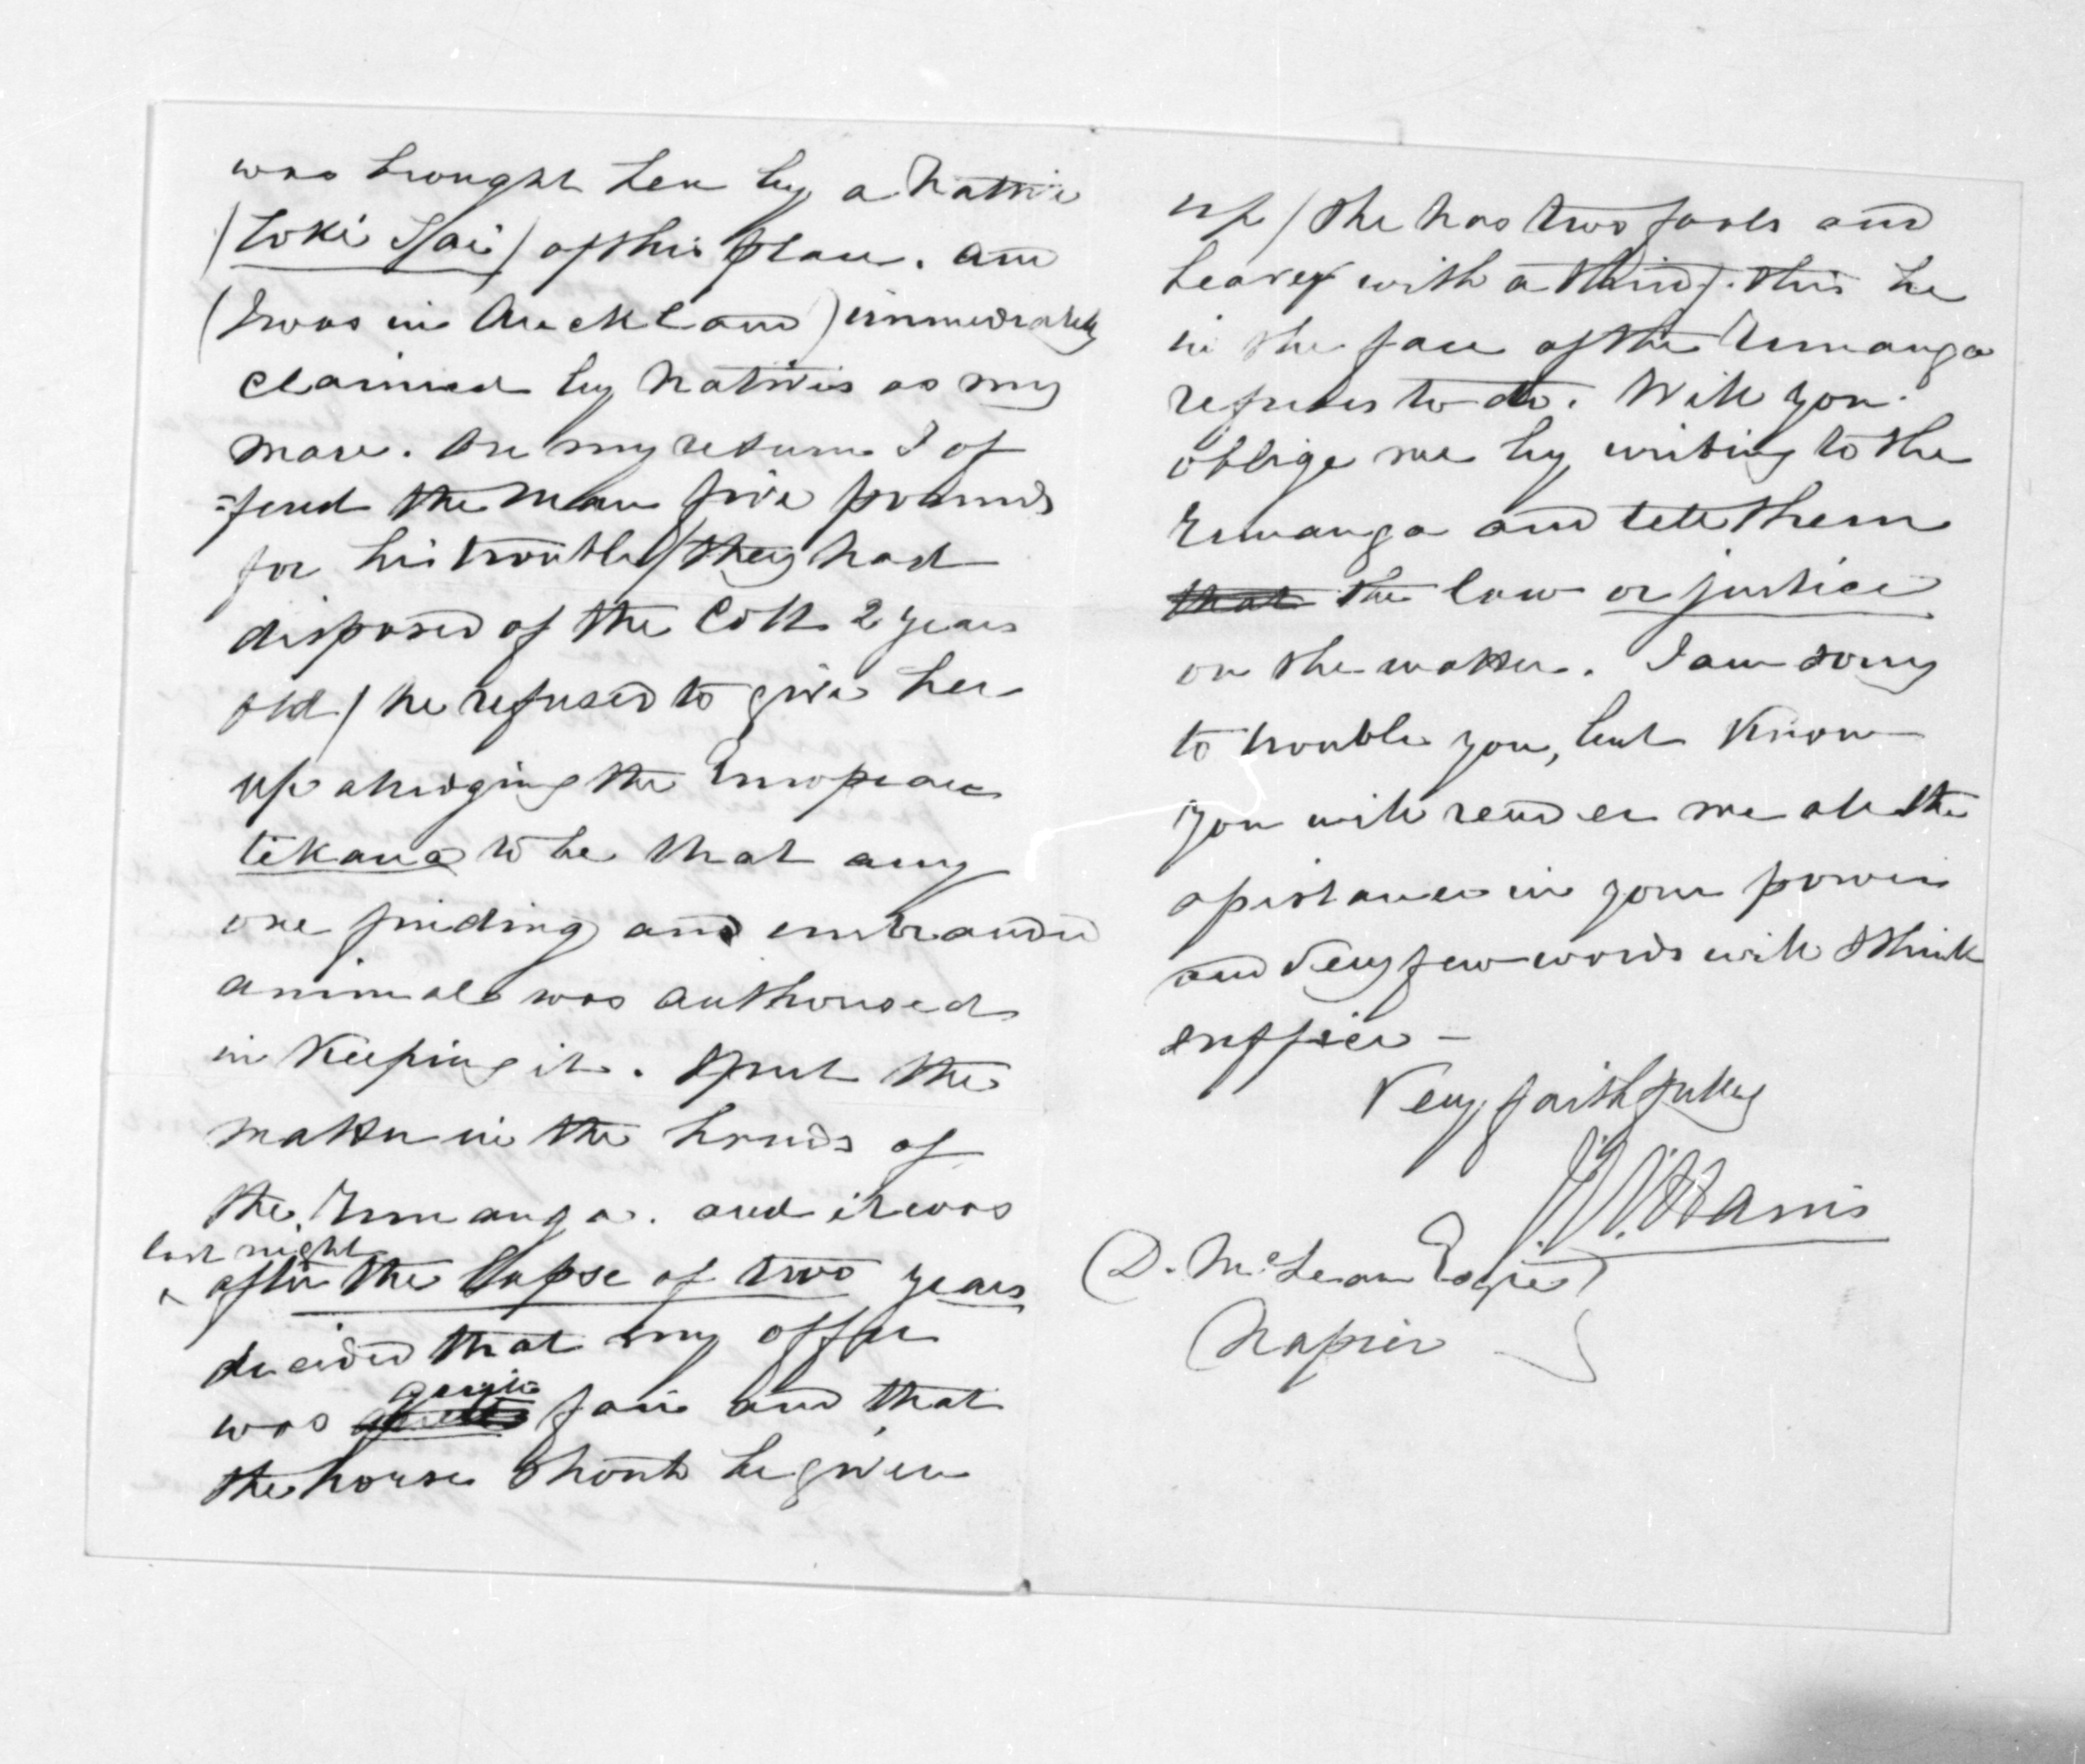 was brought here by a Native
(Toki Tai) of this place. and
(I was in Auckland) immediately
claimed by Natives as my
mare. On my return I of
=fered the man five pounds
for his trouble (they had
disposed of the Colt 2 years
old) he refused to give her
up alledging the European
tikanga to be that any
one finding and unbranded
animal was authorised
in Keeping it. I put the
matter in the hands of
the Runanga. and it was
last night
after the lapse of two years
decided that my offer
was quite fair and that
the horse should be given
up (she has two foals and
heavy with a third). this he
in the face of the Runanga
refuses to do. Will you
oblige me by writing to the
Runanga and tell them
that the law or justice
on the matter. I am sorry
to trouble you, but Know
you will render me all the
assistance in your power
and Very few words will I think
suffice -
Very faithfully
J. W. Harris
D. McLean Esqre
Napier